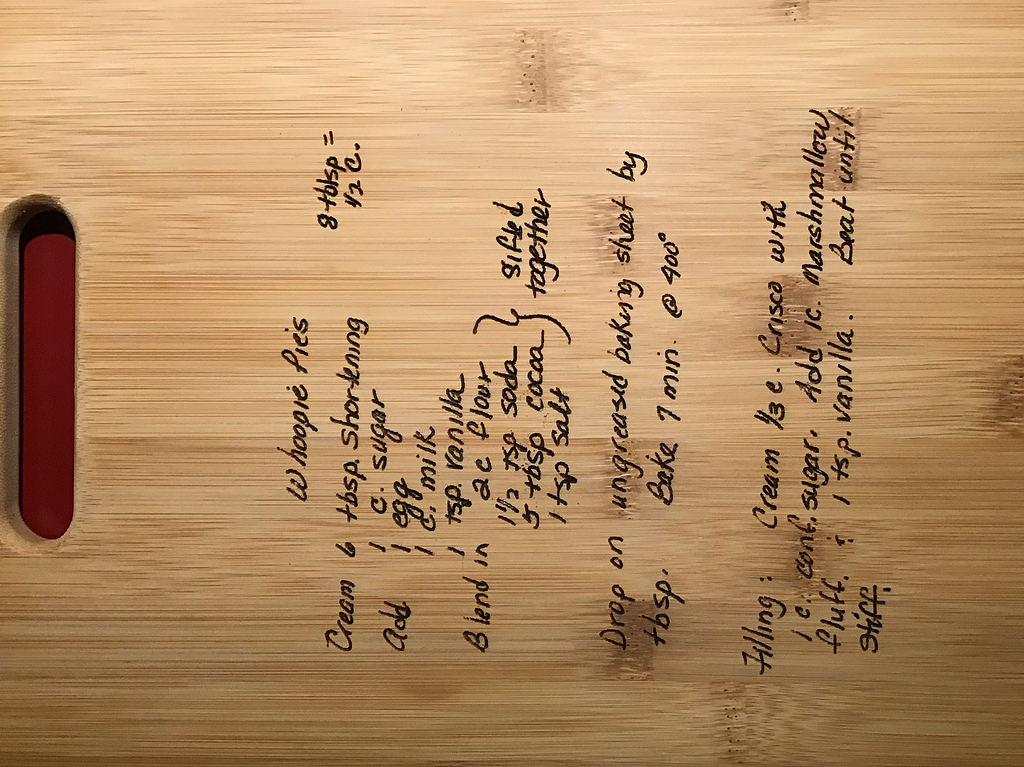 Whoopie Pies
8 tblsp =
1/2 c.
Cream 6 tbsp. shortening
1 c. sugar
Add 1 egg
1 c. milk
1 tsp. vanilla
Blend in 2 c flour
1 1/2 tsp soda
5 tbsp cocoa
1 tsp salt
Sifted
together
Drop on ungreased baking sheet by
tbsp. Bake 7 min. @ 400°
Filling: Cream 1/3 c. Crisco with
1 c. conf. sugar. Add 1c. Marshmallow
fluff. & 1 tsp. vanilla. Beat until
stiff.